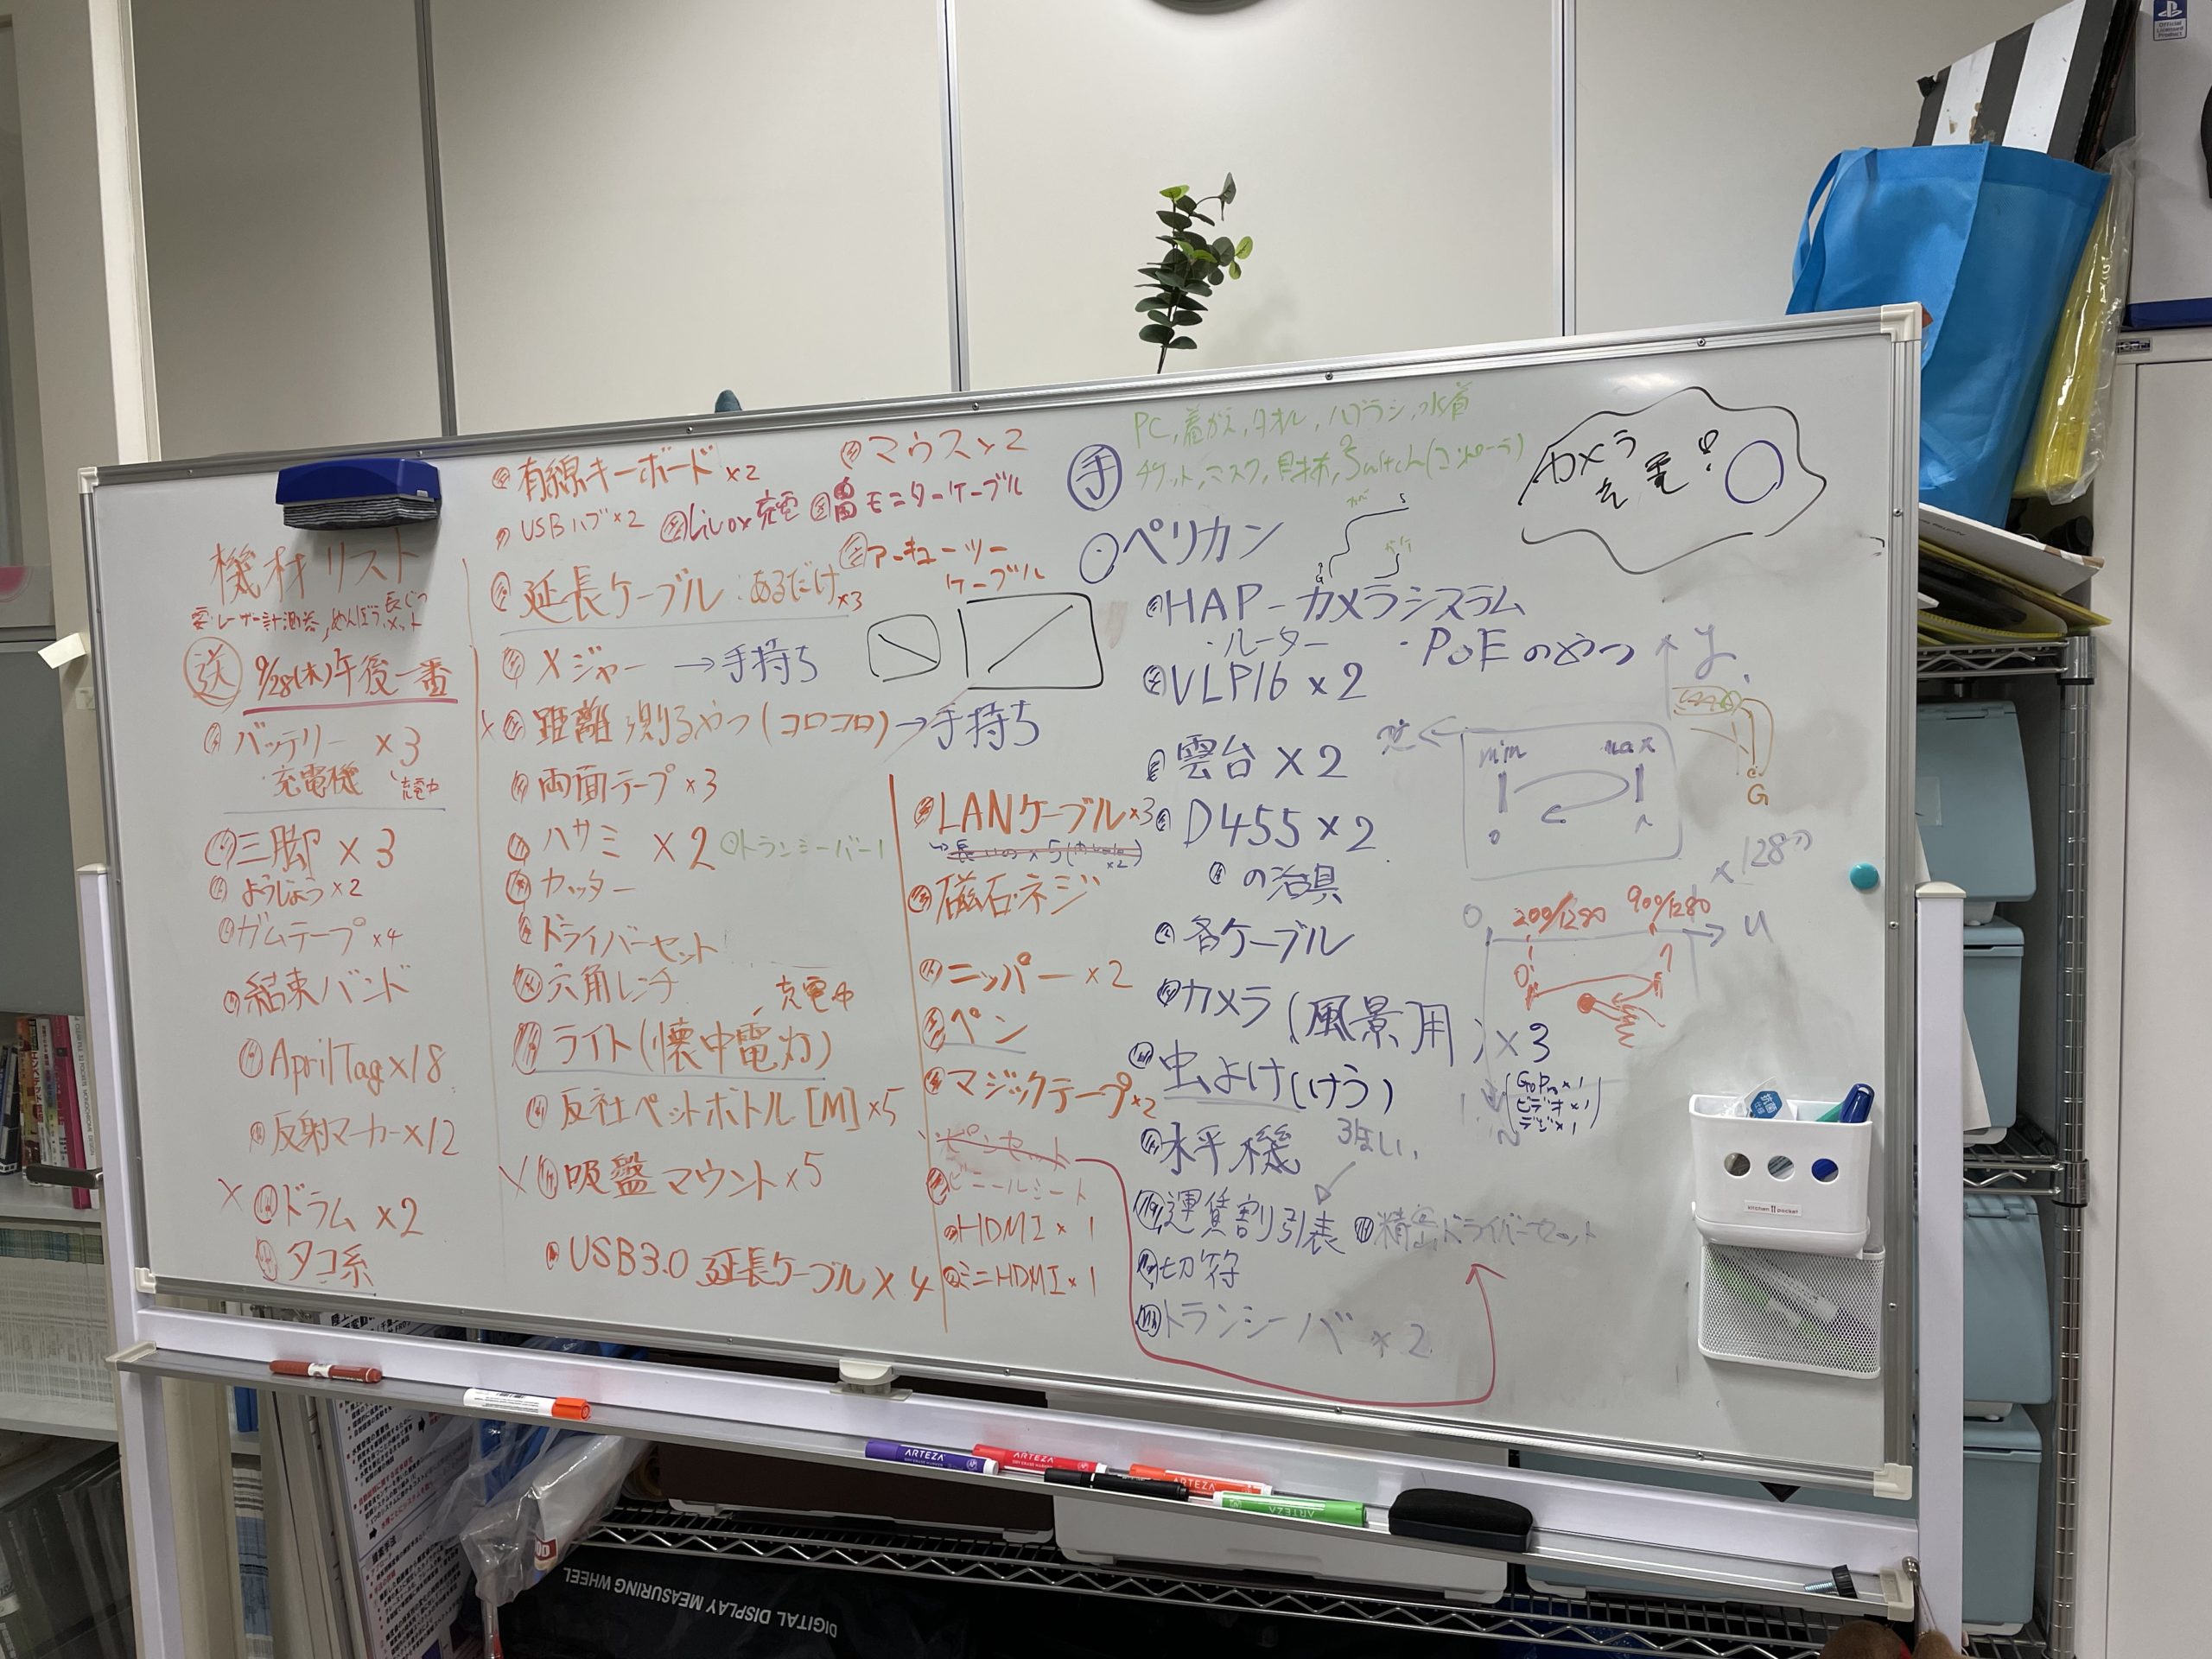 機材リスト
雲・レーザー計測器, めんぼう, 長ぐつ
メット
送 9/28(木)午後一番
バッテリー ×3
・充電機 充電中
三脚 ×3
ようじょう×2
ガムテープ×4
結束バンド
AprilTag×18
反射マーカー×12
× ドラム ×2
タコ糸
有線キーボード ×2
マウス×2
USBハブ×2
Livox充電
モニターケーブル
延長ケーブル:あるだけ×3
アーキューツー
ケーブル
メジャー →手持ち
× 距離測るやつ(コロコロ)→手持ち
両面テープ ×3
ハサミ ×2
トランシーバー1
カッター
ドライバーセット
六角レンチ
充電中
ライト(懐中電灯)
反社ペットボトル[M]×5
× 吸盤マウント×5
USB3.0 延長ケーブル×4
LANケーブル×3
磁石・ネジ
ニッパー ×2
ペン
マジックテープ×2
ピンセット
ビニールシート
HDMI×1
ミニHDMI×1
手
PC, 着がえ, タオル, ハブラシ, 水着
チケット, マスク, 財布, Switch(コントローラ)
ペリカン
HAP-カメラシステム
・ルーター ・PoEのやつ
VLP16×2
雲台×2
D455×2
の治具
各ケーブル
カメラ(風景用)×3
GoPro×1
ビデオ×1
デジ×1
虫よけ(けう)
水平機
3まい
運賃割引表
精密ドライバーセット
切符
トランシーバ ×2
カメラ
充電!
y
min max
0 1
G
×1280
0 200/1280 900/1280 u
0 1
kitchen pocket
抗菌
ARTEZA
ARTEZA
ARTEZA
ARTEZA
DIGITAL DISPLAY MEASURING WHEEL
Official
Licensed
Product